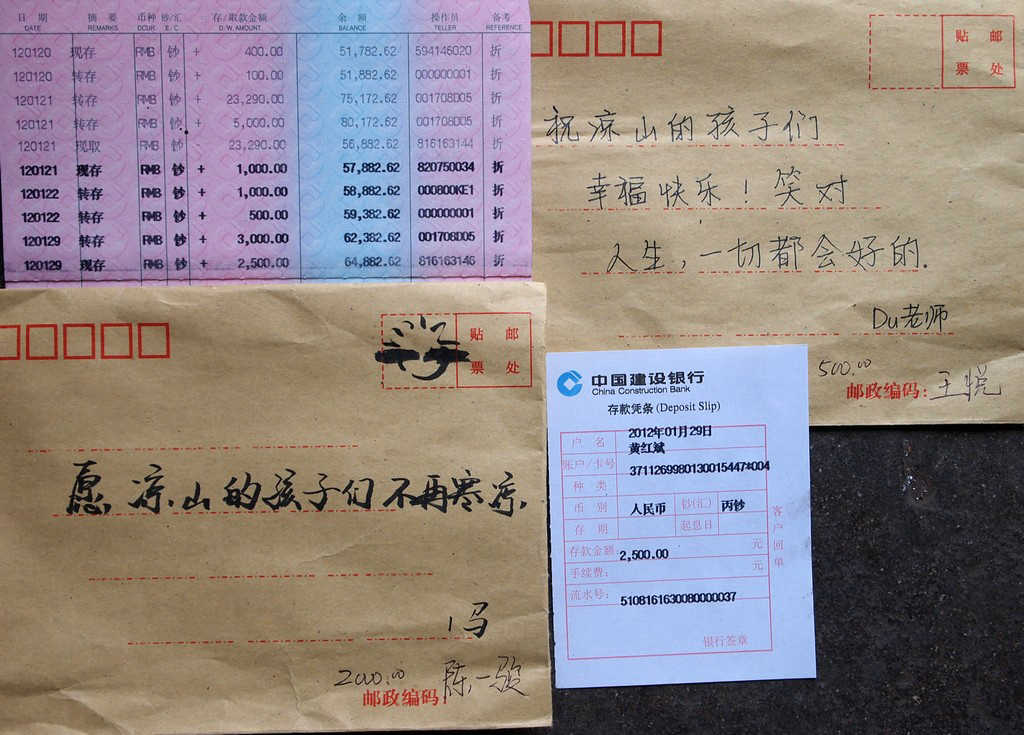 日 期 摘 要 币种 钞/汇 存/取款金额 余 额 操作员 备考
DATE REMARKS OCUR. E/C D/W.AMOUNT BALANCE TELLER REFERENCE
120120 现存 RMB 钞 + 400.00 51,782.62 594146020 折
120120 转存 RMB 钞 + 100.00 51,882.62 000000001 折
120121 转存 RMB 钞 + 23,290.00 75,172.62 001708D05 折
120121 转存 RMB 钞 + 5,000.00 80,172.62 001708D05 折
120121 现取 RMB 钞 23,290.00 56,882.62 816163144 折
120121 现存 RMB 钞 + 1,000.00 57,882.62 820750034 折
120122 转存 RMB 钞 + 1,000.00 58,882.62 000800KE1 折
120122 转存 RMB 钞 + 500.00 59,382.62 000000001 折
120129 转存 RMB 钞 + 3,000.00 62,382.62 001708D05 折
120129 现存 RMB 钞 + 2,500.00 64,882.62 816163146 折
贴 邮
票 处
祝凉山的孩子们
幸福快乐！笑对
人生，一切都会好的.
Du老师
500.00
邮政编码: 王悦
贴 邮
票 处
愿凉山的孩子们不再寒凉.
冯
2000.00 陈一骏
邮政编码:
中国建设银行
China Construction Bank
存款凭条 (Deposit Slip)
2012年01月29日
户 名 黄红斌
账户/卡号 3711269980130015447*004
种 类
币 别 人民币 钞(汇) 丙钞
存 期 起息日
存款金额 2,500.00 元
手续费: 元
流水号: 5108161630080000037
银行签章
客户回单